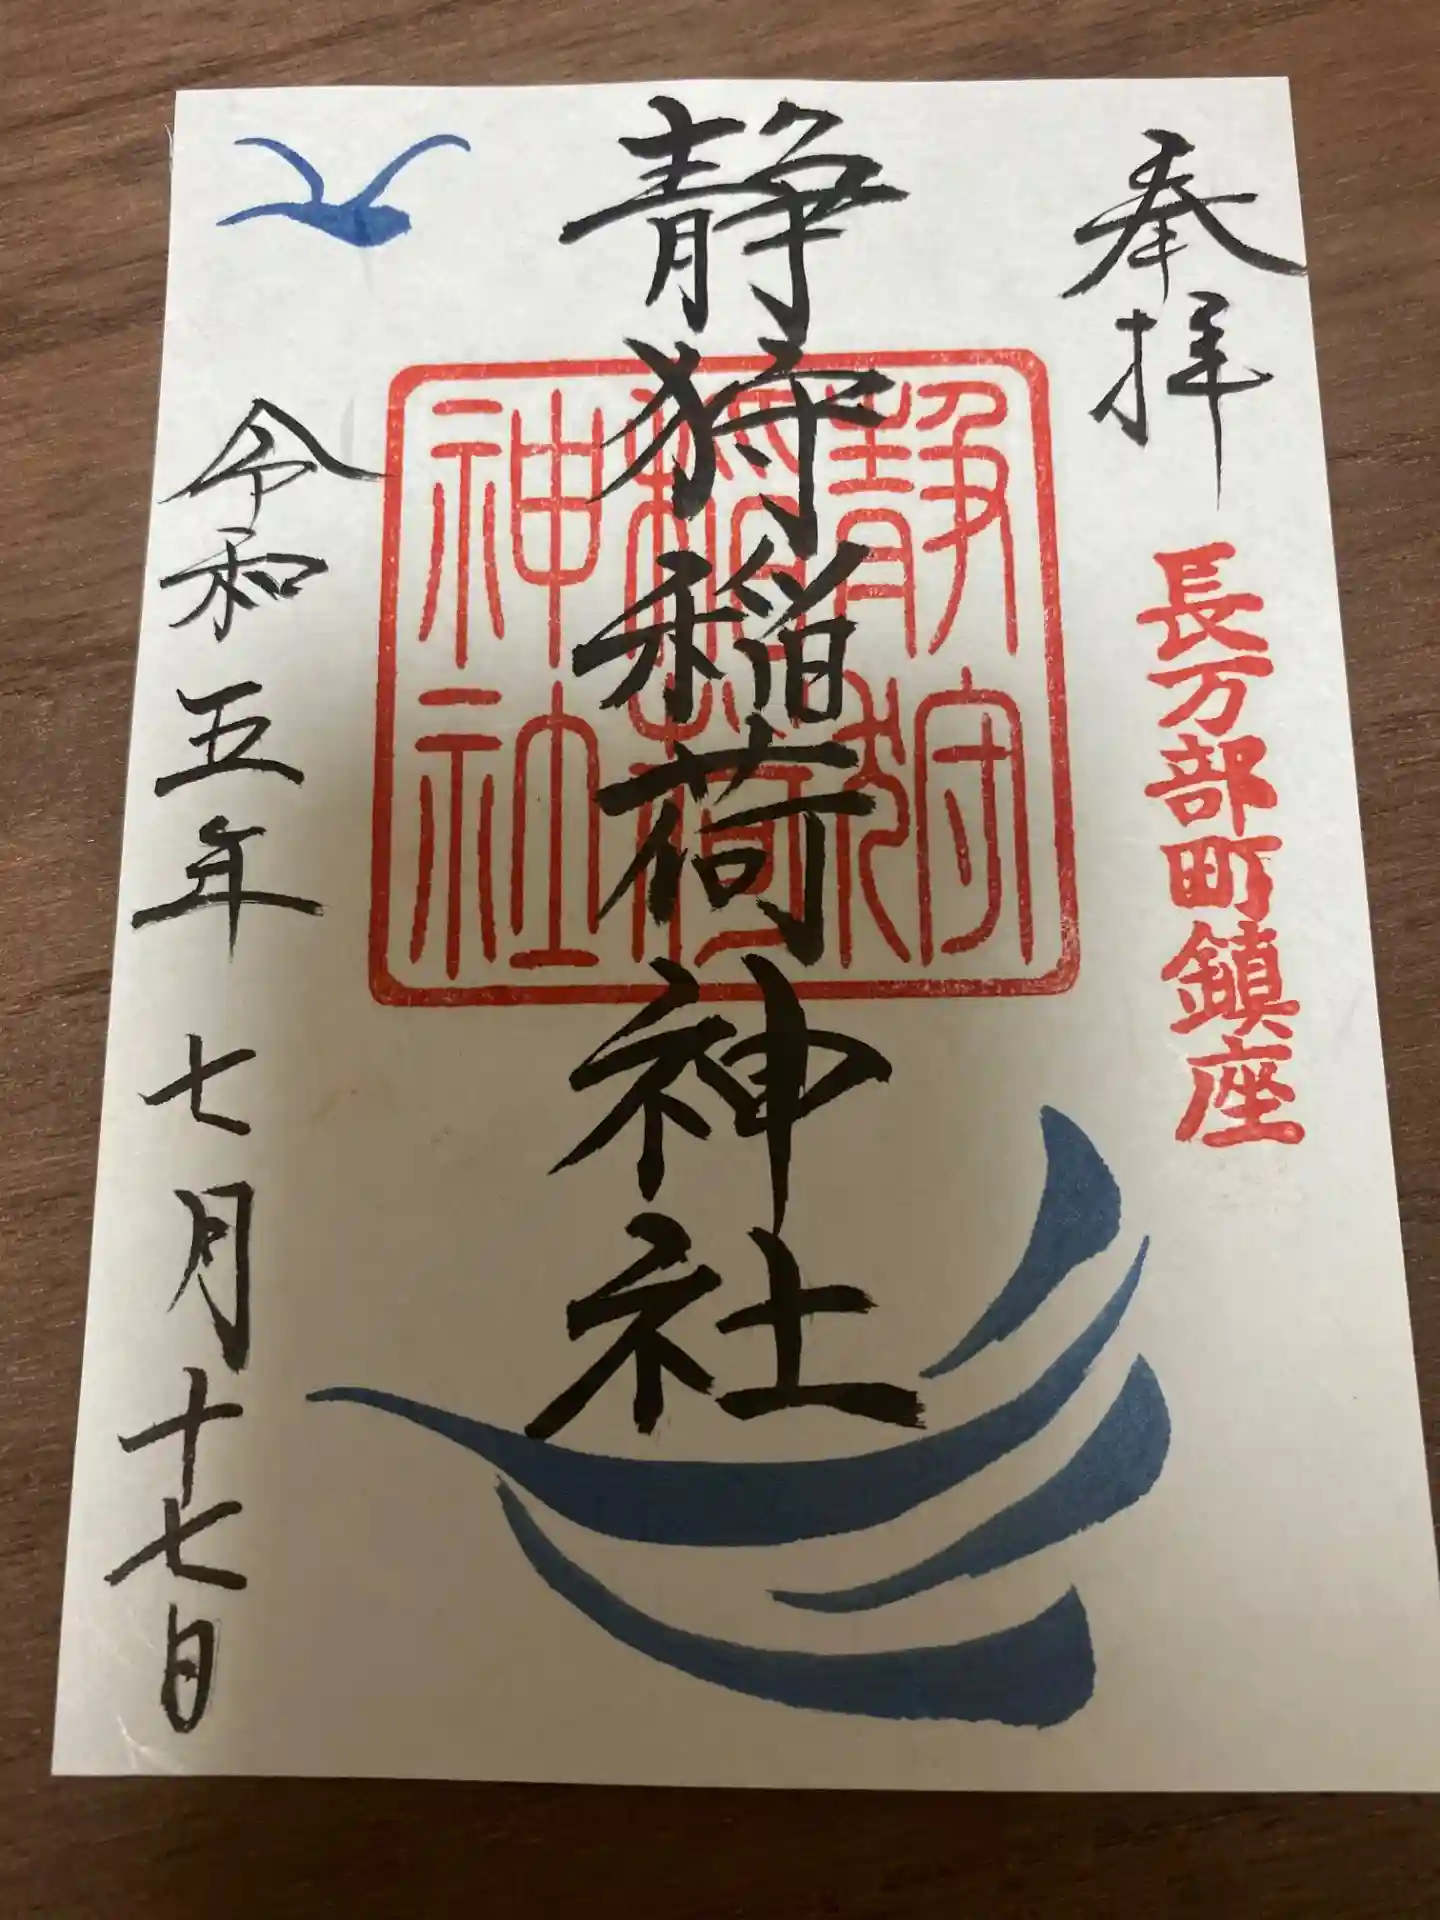 奉拝
長万部町鎮座
静狩稲荷神社
静狩
稲荷
神社
令和五年七月十七日